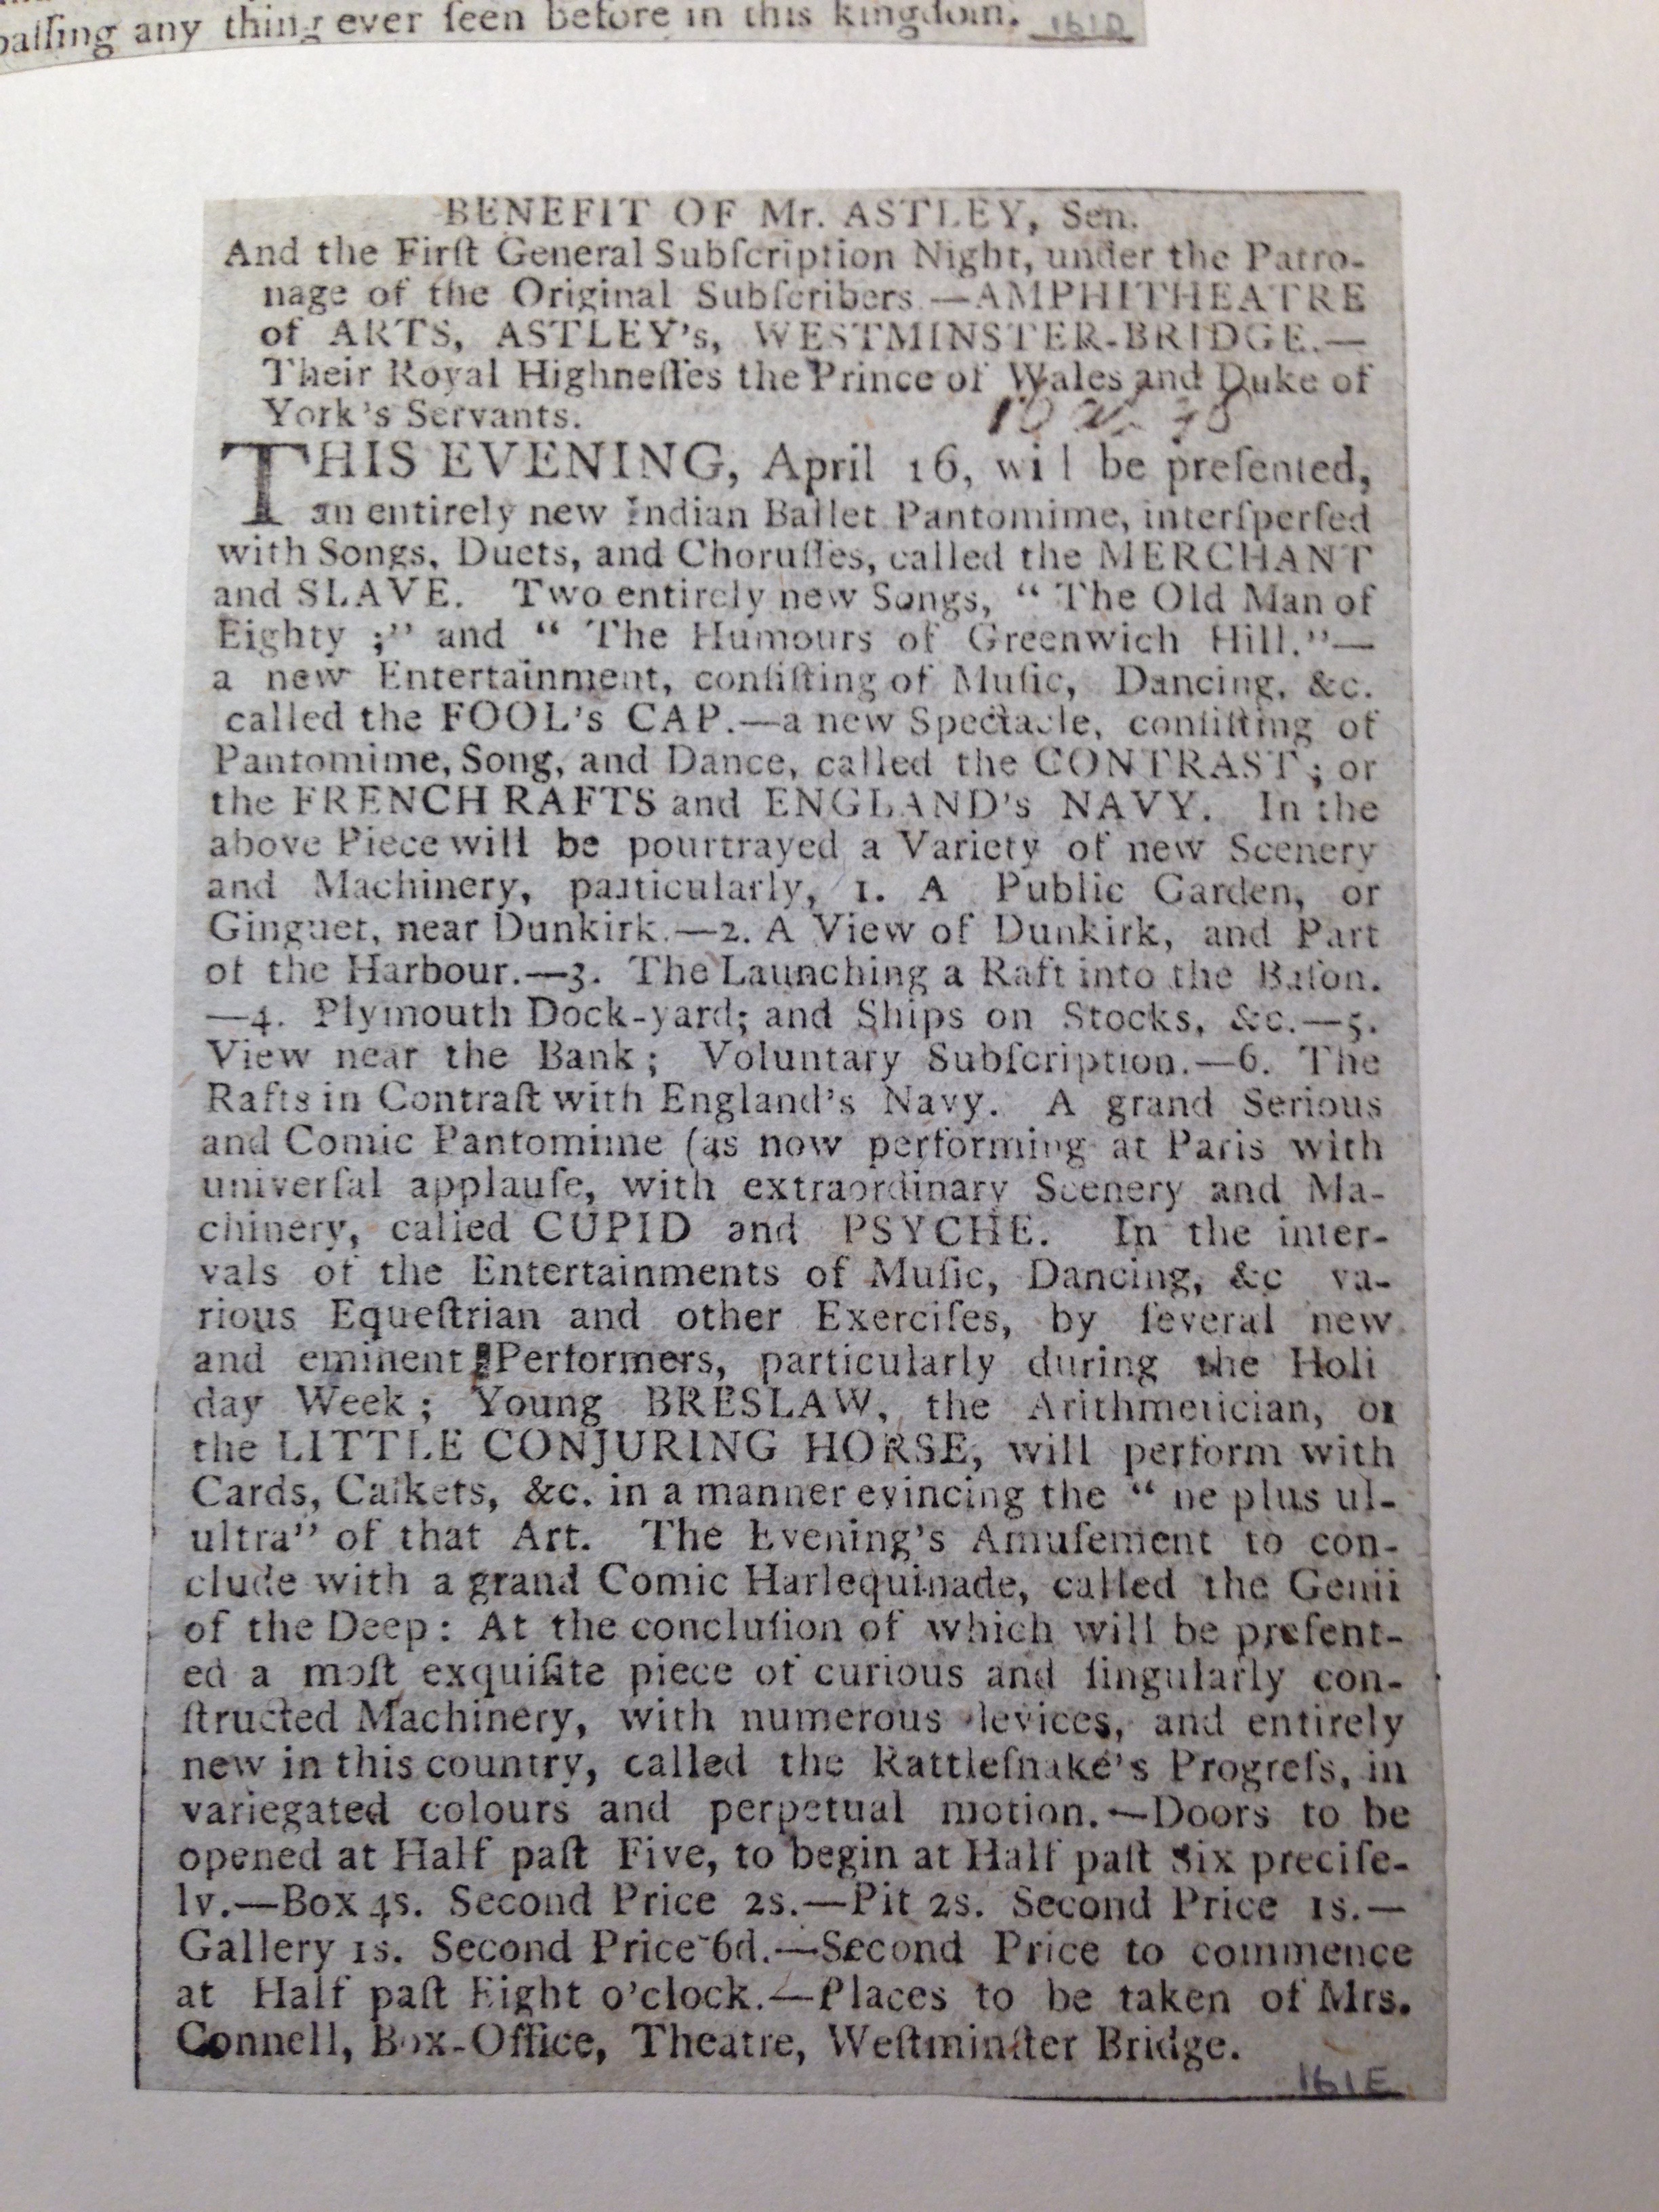 paſſing any thing ever ſeen before in this kingdom. 161D
BENEFIT OF Mr. ASTLEY, Sen.
And the Firſt General Subſcription Night, under the Patro-
nage of the Original Subſcribers.—AMPHITHEATRE
of ARTS, ASTLEY's, WESTMINSTER-BRIDGE.—
Their Royal Highneſſes the Prince of Wales and Duke of
York's Servants.
THIS EVENING, April 16, wi l be preſented,
an entirely new Indian Ballet Pantomime, interſperſed
with Songs, Duets, and Choruſſes, called the MERCHANT
and SLAVE. Two entirely new Songs, “ The Old Man of
Eighty ;” and “ The Humours of Greenwich Hill.”—
a new Entertainment, conſiſting of Muſic, Dancing, &c.
called the FOOL's CAP.—a new Spectacle, conſiſting of
Pantomime, Song, and Dance, called the CONTRAST ; or
the FRENCH RAFTS and ENGLAND's NAVY. In the
above Piece will be pourtrayed a Variety of new Scenery
and Machinery, particularly, 1. A Public Garden, or
Ginguet, near Dunkirk.—2. A View of Dunkirk, and Part
of the Harbour.—3. The Launching a Raft into the Baſon.
—4. Plymouth Dock-yard; and Ships on Stocks, &c.—5.
View near the Bank ; Voluntary Subſcription.—6. The
Rafts in Contraſt with England's Navy. A grand Serious
and Comic Pantomime (as now performing at Paris with
univerſal applauſe, with extraordinary Scenery and Ma-
chinery, called CUPID and PSYCHE. In the inter-
vals of the Entertainments of Muſic, Dancing, &c va-
rious Equeſtrian and other Exerciſes, by ſeveral new
and eminent Performers, particularly during the Holi
day Week ; Young BRESLAW, the Arithmetician, or
the LITTLE CONJURING HORSE, will perform with
Cards, Caſkets, &c. in a manner evincing the “ ne plus ul-
ultra” of that Art. The Evening's Amuſement to con-
clude with a grand Comic Harlequinade, called the Genii
of the Deep : At the concluſion of which will be preſent-
ed a moſt exquiſite piece of curious and ſingularly con-
ſtructed Machinery, with numerous devices, and entirely
new in this country, called the Rattleſnake's Progreſs, in
variegated colours and perpetual motion.—Doors to be
opened at Half paſt Five, to begin at Half paſt Six preciſe-
ly.—Box 4s. Second Price 2s.—Pit 2s. Second Price 1s.—
Gallery 1s. Second Price 6d.—Second Price to commence
at Half paſt Eight o'clock.—Places to be taken of Mrs.
Connell, Box-Office, Theatre, Weſtminſter Bridge.
161E